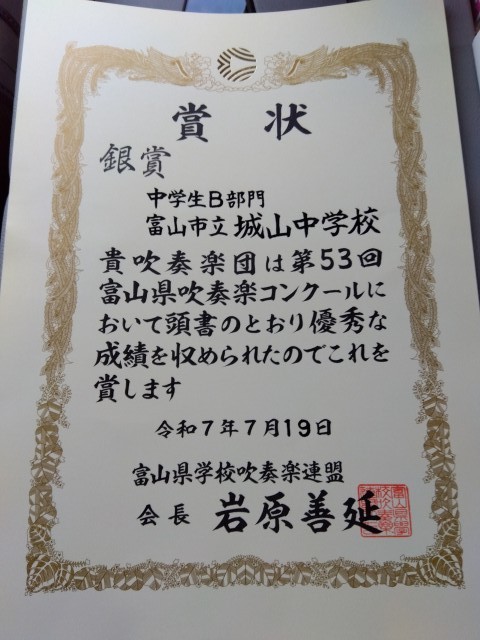 賞状
銀賞
中学生B部門
富山市立城山中学校
貴吹奏楽団は第53回
富山県吹奏楽コンクールに
おいて頭書のとおり優秀な
成績を収められたのでこれを
賞します
令和7年7月19日
富山県学校吹奏楽連盟
会長 岩原善延